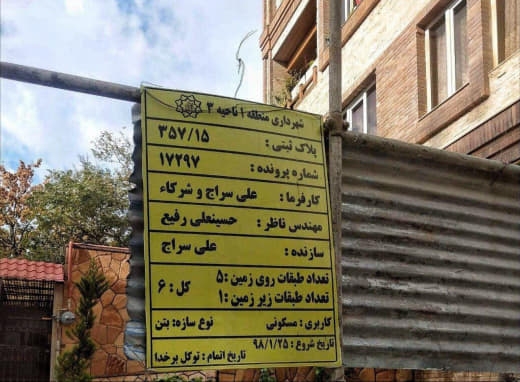 شهرداری منطقه ۱ ناحیه ۳
پلاک ثبتی : ۳۵۷/۱۵
شماره پرونده : ۱۷۲۹۷
کارفرما : علی سراج و شرکاء
مهندس ناظر : حسینعلی رفیع
سازنده : علی سراج
تعداد طبقات روی زمین :۵
تعداد طبقات زیر زمین :۱
کل : ۶
کاربری : مسکونی نوع سازه: بتن
تاریخ شروع : ۹۸/۱/۲۵
تاریخ اتمام : توکل برخدا